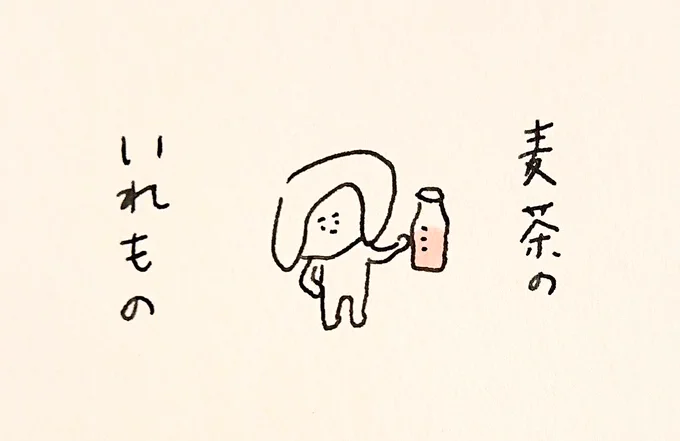 麦茶の
いれもの